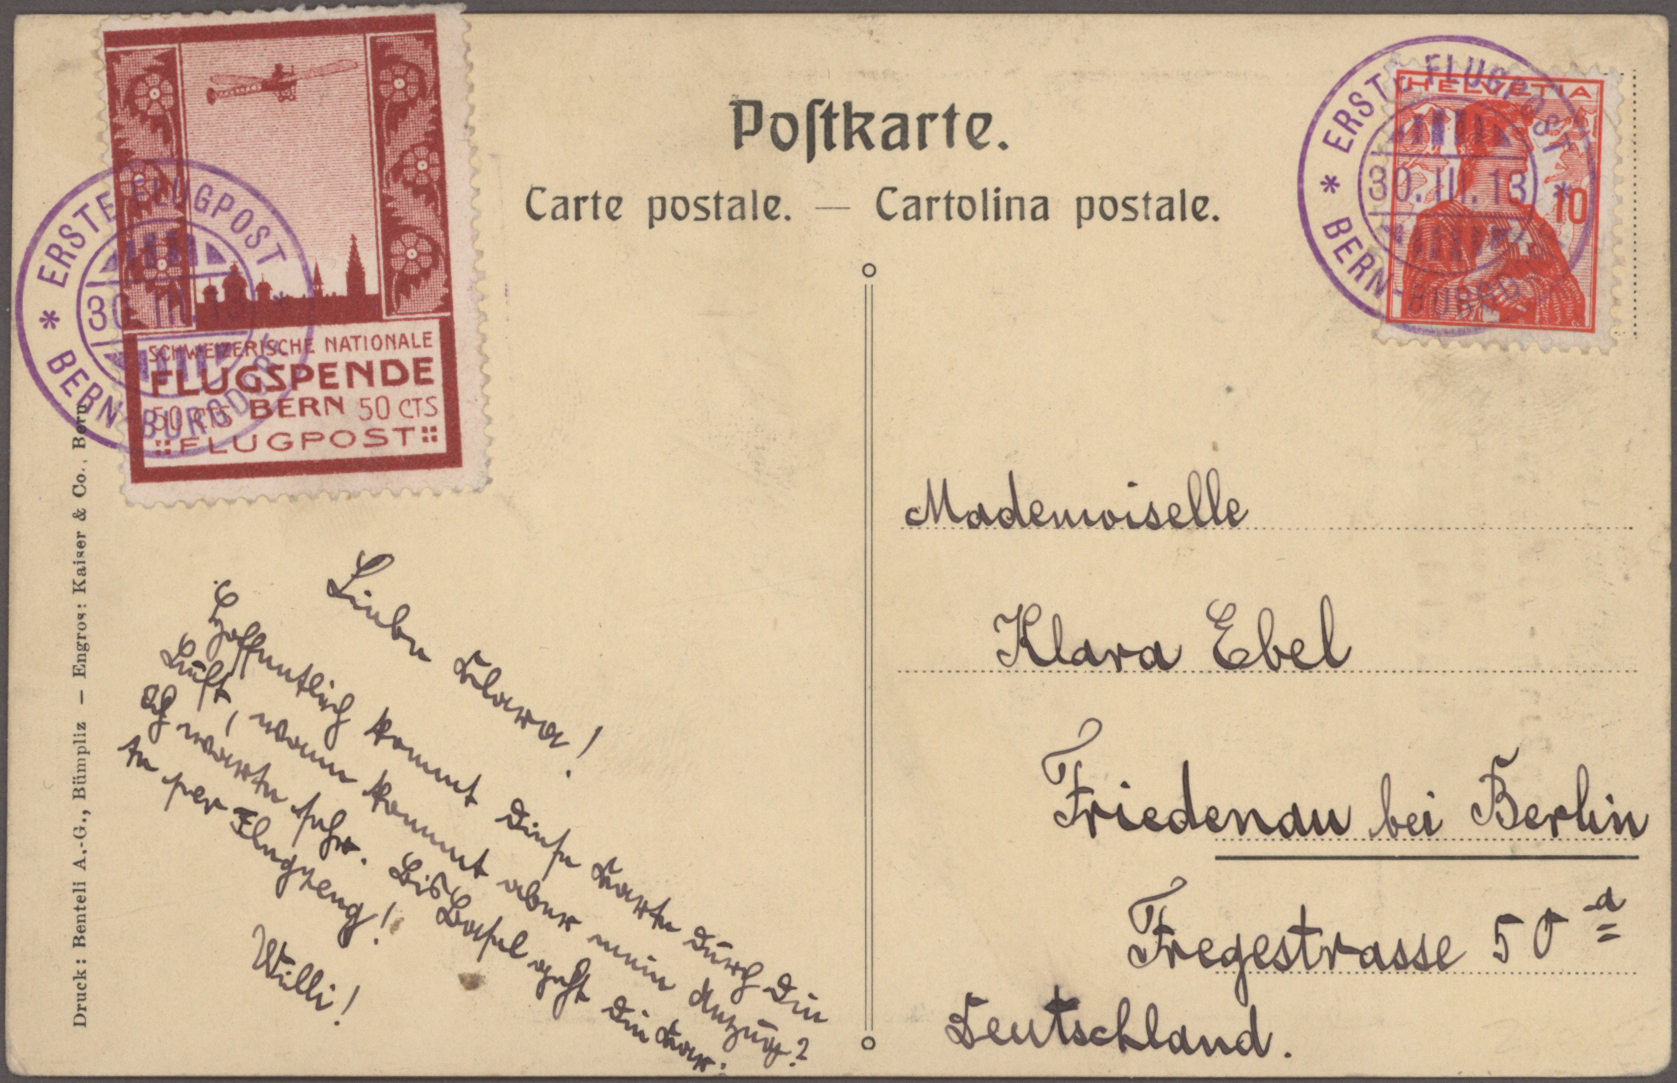 Postkarte.
Carte postale. — Cartolina postale.
SCHWEIZERISCHE NATIONALE
FLUGSPENDE
50 CTS BERN 50 CTS
FLUGPOST
* ERSTE FLUGPOST *
30.III.13
BERN-BURGDORF
HELVETIA
10
* ERSTE FLUGPOST *
30.III.13
BERN-BURGDORF
Druck: Benteli A.-G., Bümpliz – Engros: Kaiser & Co., Bern
Liebe Klara!
Hoffentlich kommt diese Karte durch die
Luft, wann kommt aber mein Anzug?
Ich warte sehr. Bis Basel geht die Kar-
te per Flugzeug!
Willi!
Mademoiselle
Klara Ebel
Friedenau bei Berlin
Fregestrasse 50 a
Deutschland.